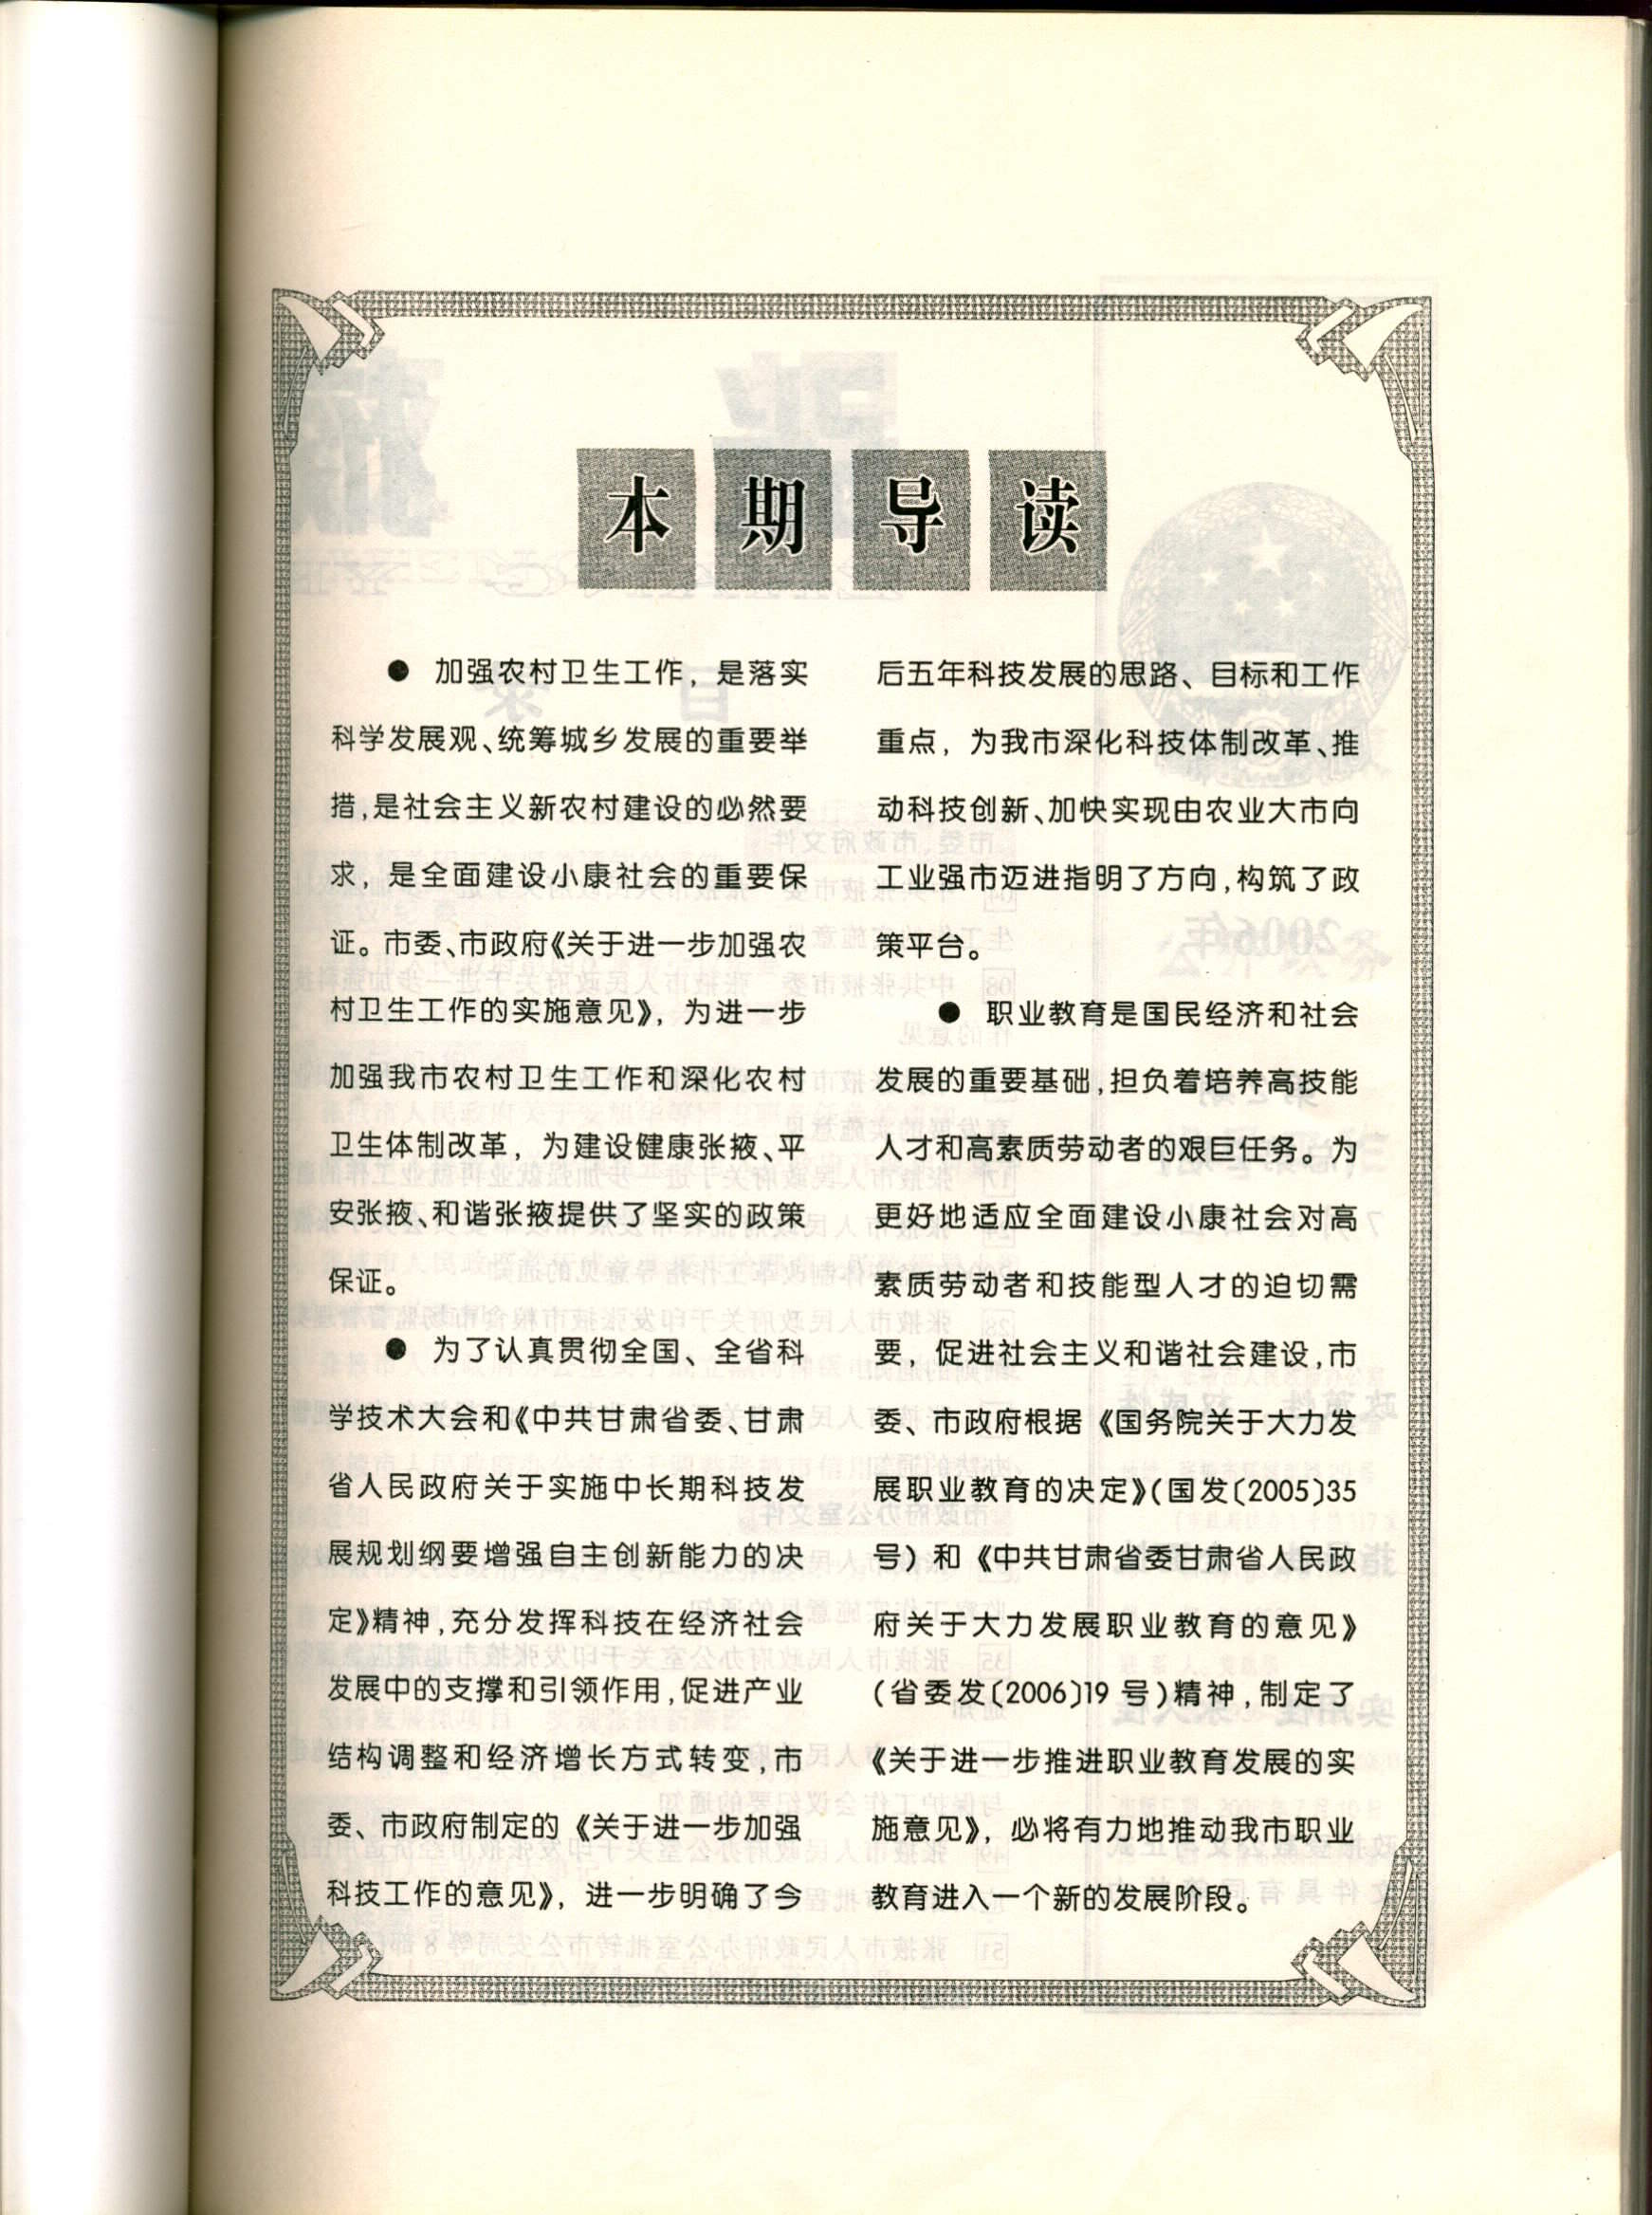 本期导读
● 加强农村卫生工作，是落实
科学发展观、统筹城乡发展的重要举
措，是社会主义新农村建设的必然要
求，是全面建设小康社会的重要保
证。市委、市政府《关于进一步加强农
村卫生工作的实施意见》，为进一步
加强我市农村卫生工作和深化农村
卫生体制改革，为建设健康张掖、平
安张掖、和谐张掖提供了坚实的政策
保证。
● 为了认真贯彻全国、全省科
学技术大会和《中共甘肃省委、甘肃
省人民政府关于实施中长期科技发
展规划纲要增强自主创新能力的决
定》精神，充分发挥科技在经济社会
发展中的支撑和引领作用，促进产业
结构调整和经济增长方式转变，市
委、市政府制定的《关于进一步加强
科技工作的意见》，进一步明确了今
后五年科技发展的思路、目标和工作
重点，为我市深化科技体制改革、推
动科技创新、加快实现由农业大市向
工业强市迈进指明了方向，构筑了政
策平台。
● 职业教育是国民经济和社会
发展的重要基础，担负着培养高技能
人才和高素质劳动者的艰巨任务。为
更好地适应全面建设小康社会对高
素质劳动者和技能型人才的迫切需
要，促进社会主义和谐社会建设，市
委、市政府根据《国务院关于大力发
展职业教育的决定》（国发〔2005〕35
号）和《中共甘肃省委甘肃省人民政
府关于大力发展职业教育的意见》
（省委发〔2006〕19号）精神，制定了
《关于进一步推进职业教育发展的实
施意见》，必将有力地推动我市职业
教育进入一个新的发展阶段。